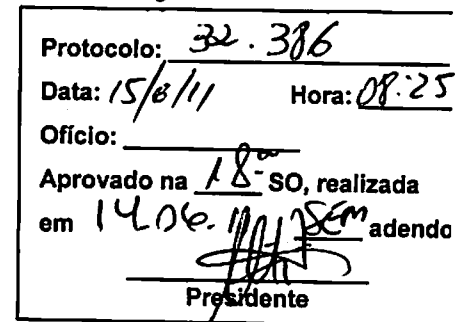 Protocolo: 32.386
Data: 15/6/11 Hora: 08:25
Ofício:
Aprovado na 18ª SO, realizada
em 14.06.11 SEM adendo
Presidente